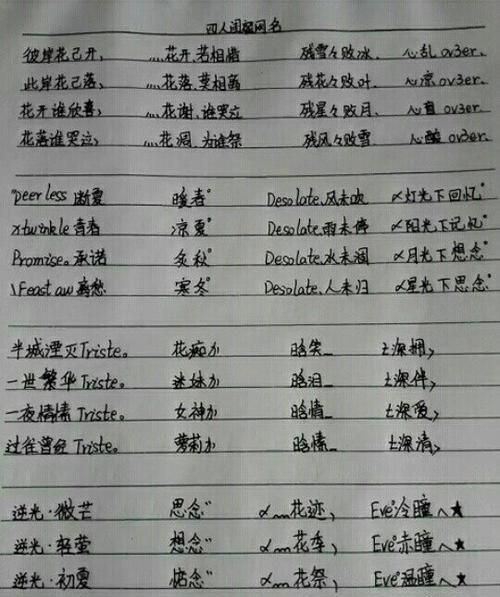 四人闺蜜网名
彼岸花已开, ﹏花开、若相惜 残雪々败冰. 心乱 ov3er.
此岸花已落, ﹏花落、莫相离 残花々败叶. 心凉 ov3er.
花开谁欣喜, ﹏花谢、谁哭泣 残星々败月. 心 ov3er.
花落谁哭泣, ﹏花凋、为谁祭 残风々败雪 心酸 ov3er.
"peerless 断夏 暖春° Desolate、风未吹 〆灯光下回忆°
xtwinkle 青春 凉夏° Desolate、雨未停 〆阳光下记忆°
Promise。承诺 炙秋° Desolate、水未涸 〆月光下想念°
\Feast aw 离愁 寒冬° Desolate、人未归 〆星光下思念°
半城湮灭Triste。 花痴か 晗笑_ ±深拥,
一世繁华Triste。 迷妹か 晗泪_ ±深伴,
一夜情愫Triste。 女神か 晗情_ ±深爱,
过往曾经 Triste。 萝莉か 晗愫_ ±深情,
逆光·微芒 思念" 〆﹏花迹, Eve°冷瞳へ★
逆光·轻萤 想念" 〆﹏花季, Eve°赤瞳へ★
逆光·初夏 惦念" 〆﹏花祭, Eve°温瞳へ★